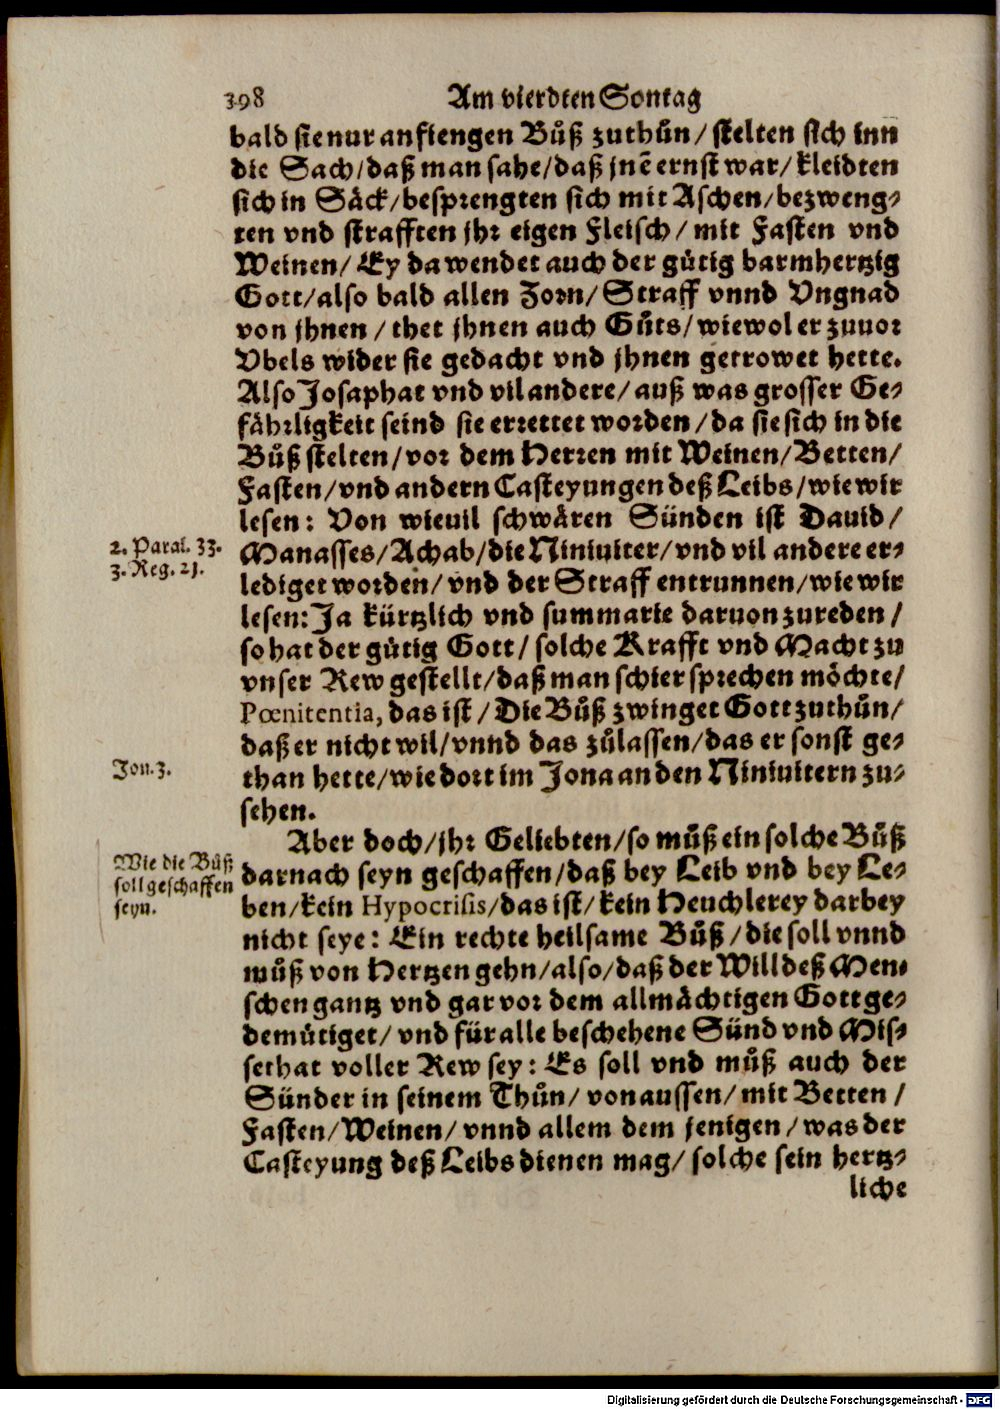 398 Am vierdten Sontag
bald sie nur anfiengen Bůß zuthůn/ stelten sich inn
die Sach/daß man sahe/daß jnē ernst war/kleidten
sich in Säck/besprengten sich mit Aschen/bezweng-
ten vnd strafften jhr eigen Fleisch/ mit Fasten vnd
Weinen/ Ey da wendet auch der gütig barmhertzig
Gott/also bald allen Zorn/ Straff vnnd Vngnad
von jhnen / thet jhnen auch Gůts/wiewol er zuuor
Vbels wider sie gedacht vnd jhnen getrowet hette.
Also Josaphat vnd vil andere/ auß was grosser Ge-
fährligkeit seind sie errettet worden/da sie sich in die
Bůß stelten/vor dem Herren mit Weinen/Betten/
Fasten/vnd andern Casteyungen deß Leibs/wie wir
lesen: Von wieuil schwären Sünden ist Dauid/
2. Paral. 33.
3. Reg. 21.
Manasses/Achab/die Niniuiter/vnd vil andere er-
lediget worden/ vnd der Straff entrunnen/wie wir
lesen: Ja kürtzlich vnd summarie daruon zureden /
so hat der gütig Gott/ solche Krafft vnd Macht zu
vnser Rew gestellt/daß man schier sprechen möchte/
Pœnitentia, das ist / Die Bůß zwinget Gott zuthůn/
daß er nicht wil/vnnd das zůlassen/das er sonst ge-
Jon. 3.
than hette/wie dort im Jona an den Niniuitern zu-
sehen.
Aber doch/jhr Geliebten/so můß ein solche Bůß
Wie die Bůß
soll geschaffen
seyn.
darnach seyn geschaffen/daß bey Leib vnd bey Le-
ben/kein Hypocrisis/das ist/kein Heuchlerey darbey
nicht seye: Ein rechte heilsame Bůß/die soll vnnd
můß von Hertzen gehn/also/daß der Will deß Men-
schen gantz vnd gar vor dem allmächtigen Gott ge-
demütiget/ vnd für alle beschehene Sünd vnd Mis-
sethat voller Rew sey: Es soll vnd můß auch der
Sünder in seinem Thůn/ von aussen/ mit Betten /
Fasten/Weinen/ vnnd allem dem jenigen/was der
Casteyung deß Leibs dienen mag/ solche sein hertz-
liche
Digitalisierung gefördert durch die Deutsche Forschungsgemeinschaft - DFG